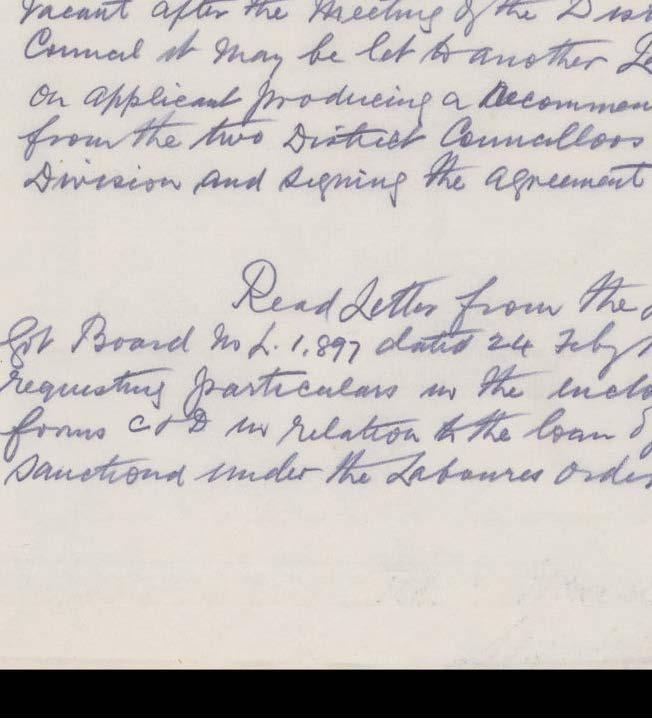 Vacant after the Meeting of the Dist
Council it may be let to another
on applicant producing a Recommen
from the two District Councillors
Division and signing the agreement
Read Letter from the
Gov Board No L. 1,897 dated 24 Feby
requesting particulars in the inclo
forms C & D in relation to the loan of
Sanctiond under the Laboures order